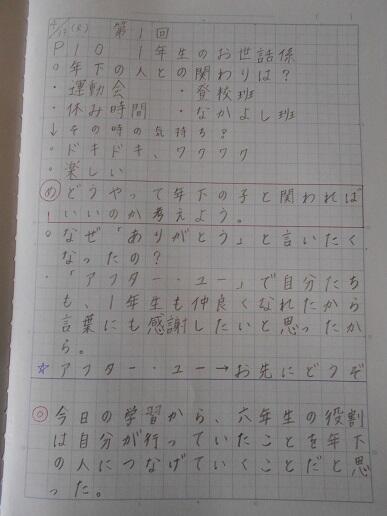 4/17(火) 第1回
P10 1年生のお世話係
○年下の人との関わりは？
・運動会 ・登校班
・休み時間 ・なかよし班
↓その時の気持ち？
○ドキドキ、ワクワク
○楽しい
め どうやって年下の子と関われば
いいのか考えよう。
○なぜ「ありがとう」と言いたく
なったの？
・「アフター・ユー」で自分たち
も、1年生も仲良くなれたから
言葉にも感謝したいと思ったか
ら。
☆アフター・ユー→お先にどうぞ
◎今日の学習から、六年生の役割
は自分が行っていたことを年下
の人につなげていくことだと思
った。